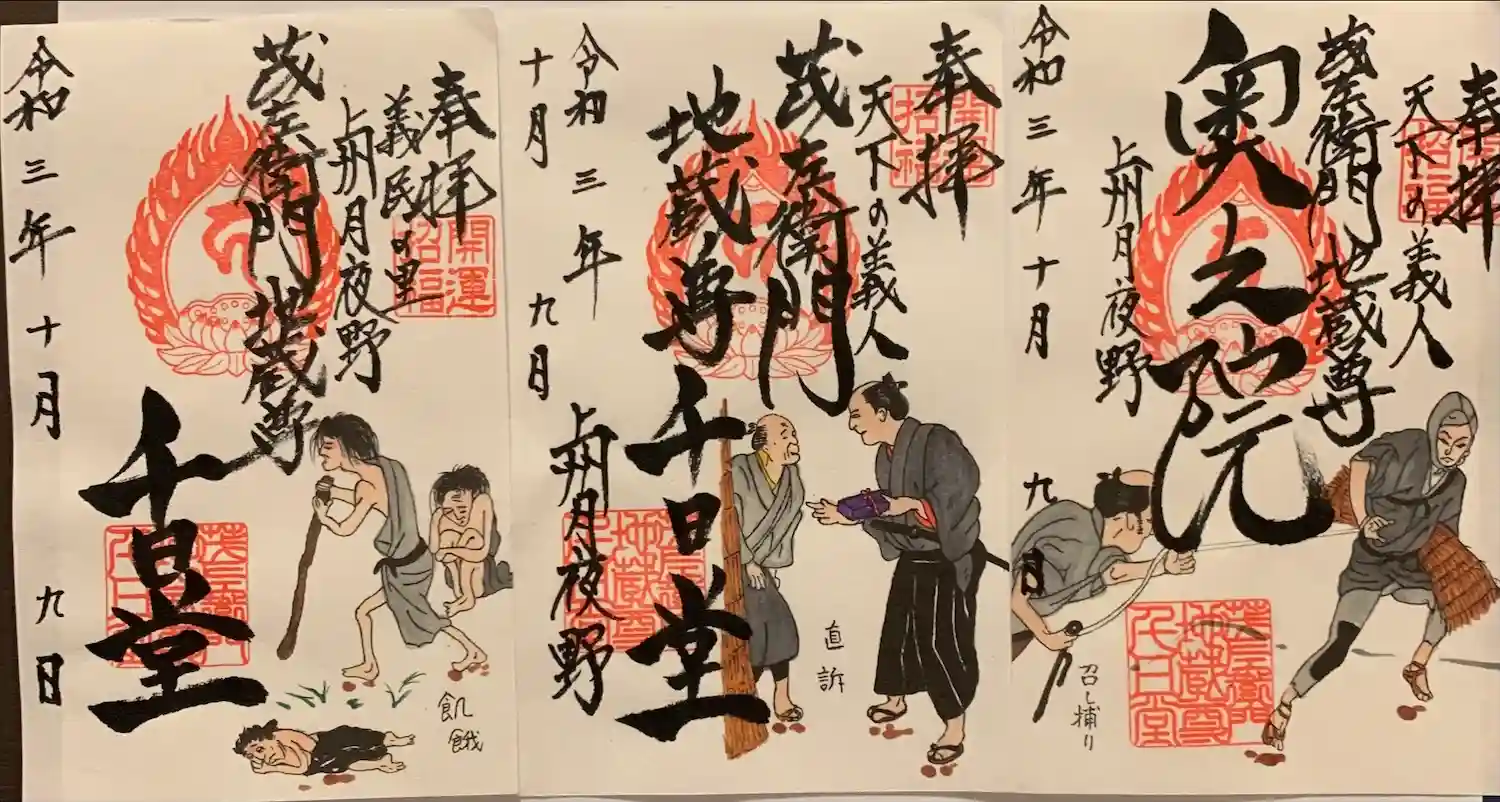 奉拝
開運
招福
義民の里
上州月夜野
茂左衛門地蔵尊
千日堂
飢餓
令和三年十月九日
奉拝
開運
招福
天下の義人
茂左衛門
地蔵尊千日堂
直訴
上州月夜野
令和三年
十月九日
奉拝
天下の義人
茂左衛門地蔵尊
奥之院
上州月夜野
茂左衛門
地蔵尊
千日堂
召し捕り
令和三年十月九日